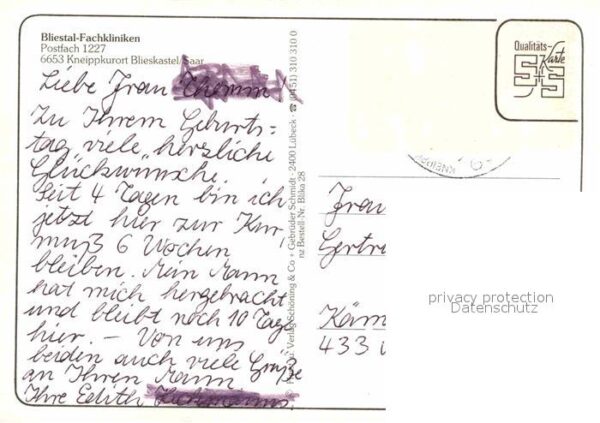 Bliestal-Fachkliniken
Postfach 1227
6653 Kneippkurort Blieskastel/Saar
Liebe Frau
Zu Ihrem Geburts=
tag viele herzliche
Glückwünsche.
Seit 4 Tagen bin ich
jetzt hier zur Kur,
muß 6 Wochen
bleiben. Mein Mann
hat mich hergebracht
und bleibt noch 10 Tage
hier. – Von uns
beiden auch viele Grüße
an Ihren Mann
Ihre Edith
Verlag Schöning & Co + Gebrüder Schmidt - 2400 Lübeck · ☎ (04 51) 310 310 0
Bestell-Nr. Blika 28
Qualitäts-
Karte
S+S
KNEIPP
Frau
Gertr
privacy protection
Datenschutz
Käm
433